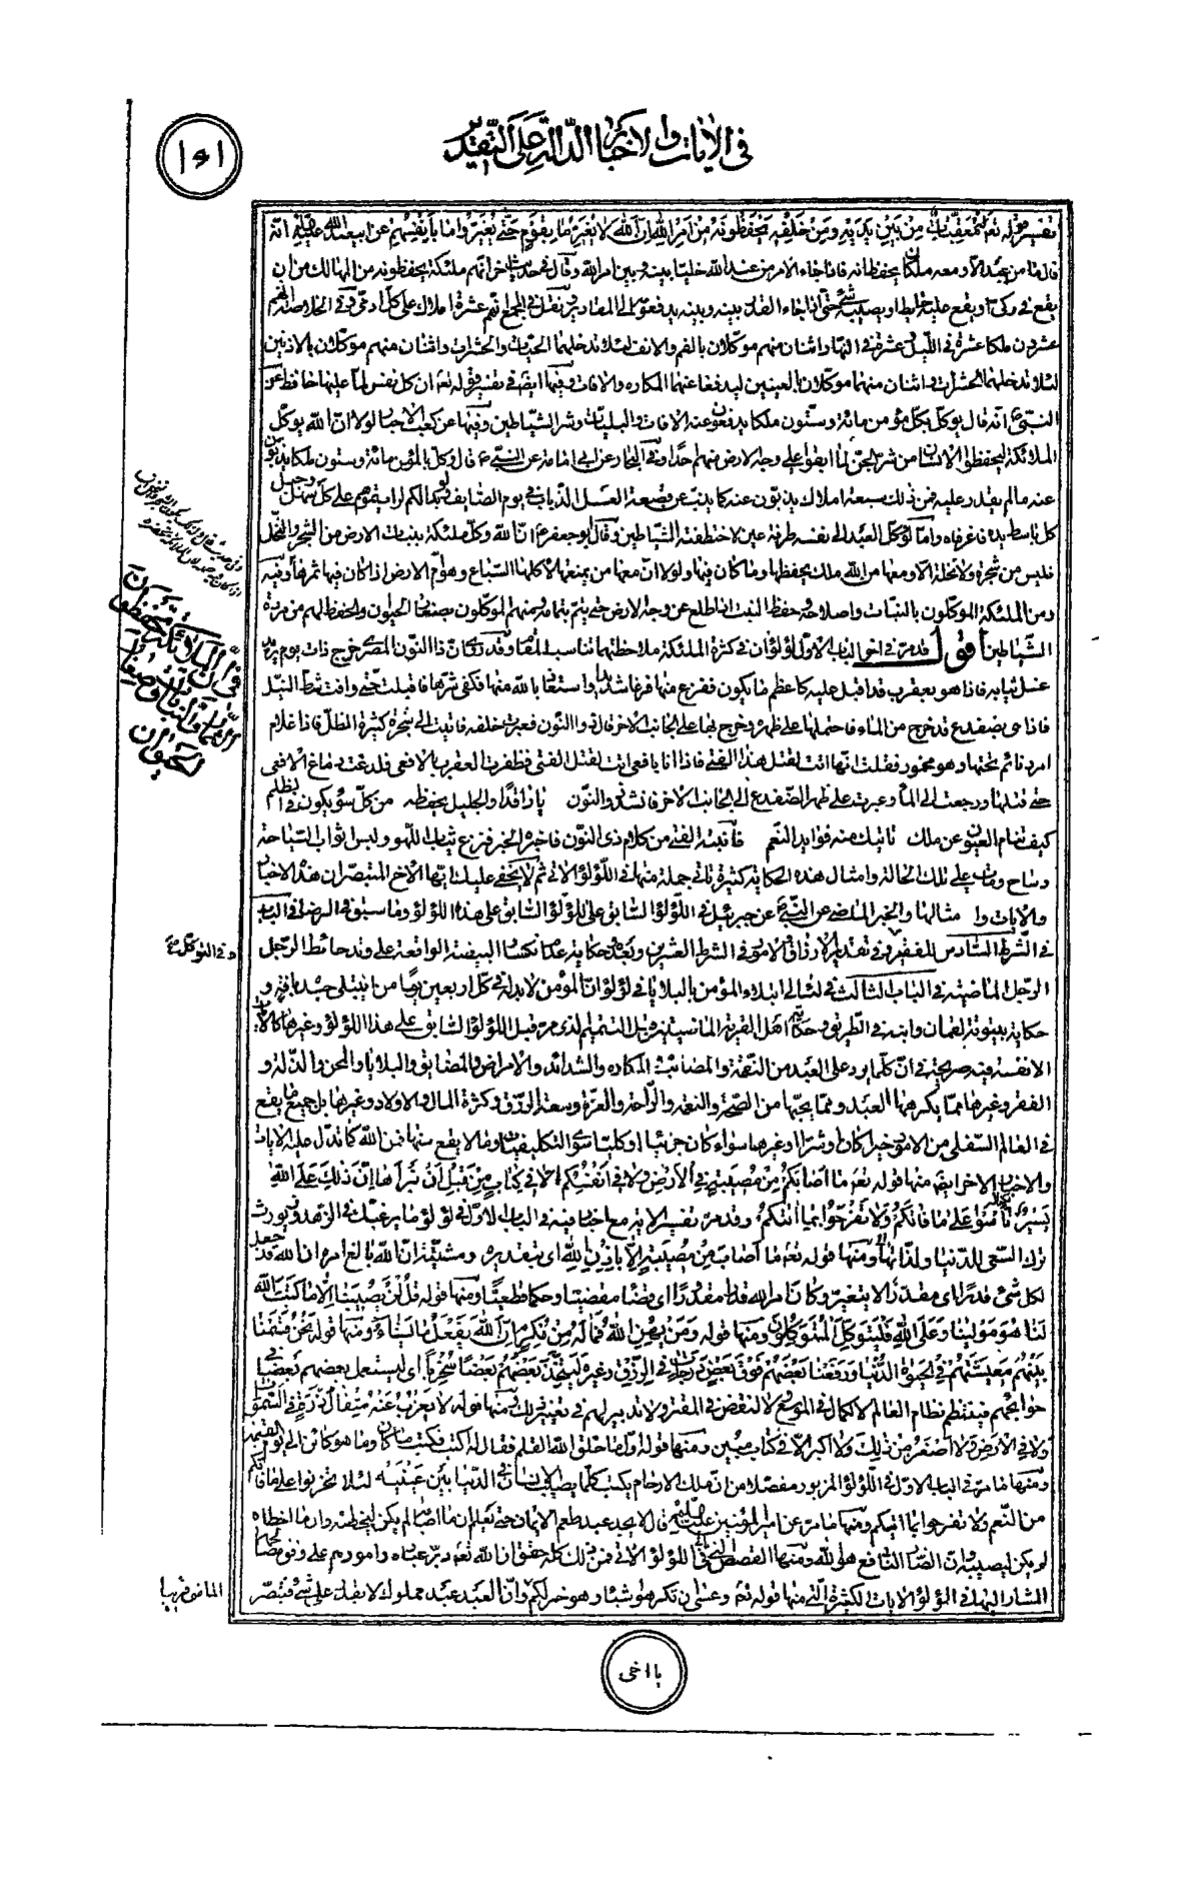 في الآيات والاخبار الدالة على التقدير
تفسير قوله تعالى له معقبات من بين يديه ومن خلفه يحفظونه من امر الله ان الله لا يغير ما بقوم حتى يغيروا ما بانفسهم عن ابيعبد الله عليه السلام انه
قال ما من عبد الا ومعه ملكان يحفظانه فاذا جاء الامر من عند الله خليا بينه وبين امر الله وقال اخر انهم ملئكة يحفظونه من المهالك من ان
يقع في ركي او يقع عليه حايط او يصيبه شئ حتى اذا جاء القدر بينه وبينه يدفعونه الى المقادير نقل في المجمع انهم عشرة املاك على كل ادمي وفي الخلاصة انهم
عشرون ملكا عشرة في الليل وعشرة في النهار اثنان منهم موكلان بالفم والانف لئلا تدخلهما الحيات والحشرات واثنان منهم موكلان بالاذنين
لئلا تدخلهما الحشرات واثنان منهما موكلان بالعينين ليدفعا عنهما المكاره والافات وفيها ايضا في تفسير قوله تعالى ان كل نفس لما عليها حافظ عن
النبي ص انه قال يوكل بكل مؤمن مائة وستون ملكا يدفعون عنه الافات والبليات وشر الشياطين وفيها عن كعب الاحبار لولا ان الله يوكل
الملائكة ليحفظوا الانسان من شر الجن لما ابقوا على وجه الارض منهم احدا وفي البحار عن ابي امامة عن النبي ص قال وكل بالمؤمن مائة وستون ملكا يذبون
عنه ما لم يقدر عليه فمن ذلك سبعة املاك يذبون عنه كما يذب عن قصعة العسل الذباب في يوم الصايف ولو بدا لكم لرايتموهم على كل سهل وجبل
كل باسط يده فاغر فاه وما لو وكل العبد الى نفسه طرفة عين لاختطفته الشياطين وقال ابو جعفر ع ان لله وكل ملئكة بنبات الارض من الشجر والنخل
فليس من شجرة ولا نخلة الا ومعها من الله ملك يحفظها وما كان فيها ولولا ان معها من يمنعها لاكلها السباع وهوام الارض اذا كان فيها ثمرها وفيه
ومن الملئكة الموكلون بالنبات واصلاحه وحفظ النبت اذا طلع عن وجه الارض حتى يتم بتمامه ومنهم الموكلون بصنعان الحيوان والحفظ لهم من مردة
الشياطين اقول قد مر في اخر الباب الاول لؤلؤان في كثرة الملئكة ملاحظتهما تناسب المقام وقد روي ان ذا النون المصري خرج ذات يوم يريد
غسل ثيابه فاذا هو بعقرب قد اقبل عليه كاعظم ما يكون ففزع منها فزعا شديدا واستعاذ بالله منها فكفى شرها فاقبلت حتى وافت شط النيل
فاذا هي بضفدع قد خرج من الماء فاحتملها على ظهره وخرج بها على الجانب الاخر قال ذو النون فعبرت خلفه فاتيت الى شجرة كثيرة الظل فاذا غلام
امرد نائم تحتها وهو مخمور فقلت انها اتت لقتل هذا الفتى فاذا انا بافعى اتت لقتل الفتى فظفرت العقرب بالافعى فلدغت دماغ الافعى
حتى قتلها ورجعت الى الماء وعبرت على ظهر الضفدع الى الجانب الاخر فانشد ذو النون يا راقدا والجليل يحفظه من كل سوء يكون في الظلم
كيف تنام العيون عن ملك تاتيك منه فوايد النعم فانتبه الفتى من كلام ذي النون فاخبره الخبر فنزع ثياب اللهو ولبس اثواب السياحة
وساح ومات على تلك الحالة وامثال هذه الحكاية كثيرة تاتي جملة منها في اللؤلؤ الاتي ثم لا يخفى عليك ايها الاخ المتبصر ان هذه الاخبار
والآيات وا مثالها والخبر الماضي عن النبي ص عن جبرئيل في اللؤلؤ السابق على اللؤلؤ السابق على هذا اللؤلؤ وما سبق في الرضا في الباب
في الشرط السادس للفقير وفي تقدير الارزاق والامور في الشرط العشرين وبعده حكاية عدم انكسار البيضة الواقعة على وتد حائط الرجل
الرجل الماضية في الباب الثالث في لئالي ابتلاء المؤمن بالبلايا في لؤلؤ ان المؤمن لا بد له في كل اربعين يوما من ان يبتلى جسده بآفة و
حكاية بيتوتة لقمان وابنه في الطريق وحكاية اهل القرية الماضية في ذيل التتميم لذي مر قبل اللؤلؤ السابق على هذا اللؤلؤ وغيرها كالآيات
الانفسية صريحة في ان كلما يرد على العبد من النقمة والمصائب المكاره والشدائد والامراض والمضايق والبلايا والمحن والذلة و
الفقر وغيرها مما يكرهها العبد ومما يحبها من الصحة والنعمة والراحة والعزة وسعة الرزق وكثرة المال والاولاد وغيرها بل جميع ما يقع
في العالم السفلي من الامور خيرا كان او شرا او غيرها سواء كان جزئيا او كليا سوى التكليفيات وما لا يقع منها فمن الله كما تدل عليه الايات
والاخبار الاخر ايضا منها قوله تعالى ما اصابكم من مصيبة في الارض ولا في انفسكم الا في كتاب من قبل ان نبراها ان ذلك على الله
يسير لكيلا تاسوا على ما فاتكم ولا تفرحوا بما اتيكم وقد مر تفسير الاية مع اخبار فيه في الباب الاول في لؤلؤ ما يرغبك في الزهد ويورث
ترك السعي للدنيا ولذاتها ومنها قوله تعالى ما اصاب من مصيبة الا باذن الله اي بتقديره ومشيته ان الله بالغ امره ان الله قد جعل
لكل شئ قدرا اي مقدرا لا يتغير وكان امر الله قدرا مقدورا اي قضاء مقضيا وحكما قطعيا ومنها قوله قل لن يصيبنا الا ما كتب الله
لنا هو مولينا وعلى الله فليتوكل المتوكلون ومنها قوله ومن يهن الله فما له من مكرم ان الله يفعل ما يشاء ومنها قوله نحن قسمنا
بينهم معيشتهم في الحيوة الدنيا ورفعنا بعضهم فوق بعض درجات في الرزق وغيره ليتخذ بعضهم بعضا سخريا اي ليستعمل بعضهم بعضا في
حوائجهم فينتظم نظام العالم لا لكمال في الموسع ولا لنقص في المقتر ولا تدبير لهم في تغييره ومنها قوله لا يعزب عنه مثقال ذرة في السموات
ولا في الارض ولا اصغر من ذلك ولا اكبر الا في كتاب مبين ومنها قوله واما خلق الله القلم فقال له اكتب فكتب ما كان وما هو كائن الى يوم القيمة
ومنها ما مر في الباب الاول في اللؤلؤ المزبور مفصلا من ان ملك الارحام يكتب كلما يصيب الانسان في الدنيا بين عينيه لئلا تحزنوا على ما فاتكم
من النعم ولا تفرحوا بما اتيكم ومنها ما مر عن امير المؤمنين عليه السلام قال لا يجد عبد طعم الايمان حتى يعلم ان ما اصابه لم يكن ليخطئه وان ما اخطاه
لم يكن ليصيبه وان الضار النافع هو الله ومنها القصص التي في اللؤلؤ الاتي فمن ذلك كله حقق ان الله تعالى مدبر عباده وامورهم على وفق مصالحهم
المشار اليها في اللؤلؤ الايات الكثيرة التي منها قوله تعالى وعسى ان تكرهوا شيئا وهو خير لكم وان العبد عبد مملوك لا يقدر على شئ فتبصر
في ان الملائكة يحفظون
النماء والنبات وصنعان
الحيوان
وفي التوكل منه
الماضي قريبا
يا اخي